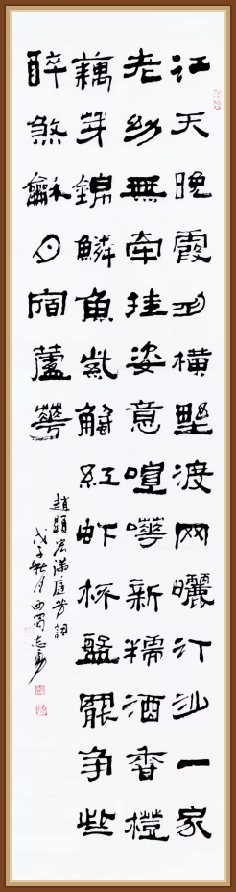 江天晚霞舟橫野渡网曬汀沙一家
老幼無牽挂姿意喧嘩新糯酒香橙
藕芽錦鱗魚紫蟹紅虾杯盤罷争些
醉煞龢月宿蘆華
趙顯宏滿庭芳詞
戊子秋月西蜀志勇